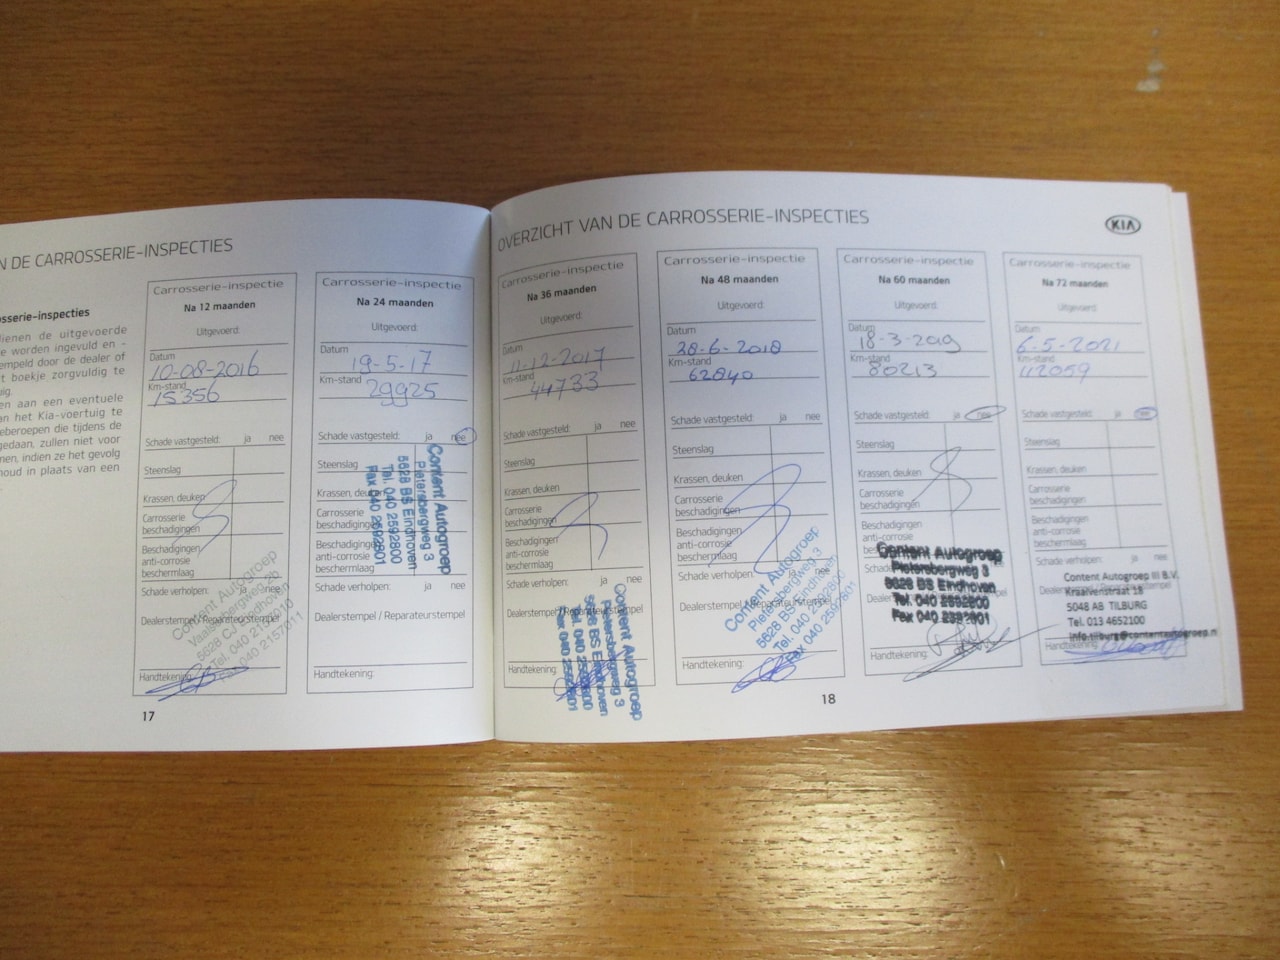 N DE CARROSSERIE-INSPECTIES
sserie-inspecties
dienen de uitgevoerde
e worden ingevuld en -
empeld door de dealer of
t boekje zorgvuldig te
ig.
en aan een eventuele
an het Kia-voertuig te
beroepen die tijdens de
gedaan, zullen niet voor
men, indien ze het gevolg
houd in plaats van een
Carrosserie-inspectie
Na 12 maanden
Uitgevoerd:
Datum
10-08-2016
Km-stand
15356
Schade vastgesteld: ja nee
Steenslag
Krassen, deuken
Carrosserie
beschadigingen
Beschadigingen
anti-corrosie
beschermlaag
Schade verholpen: ja nee
Dealerstempel / Reparateurstempel
Content Autogroep
5628 CJ Eindhoven
Fax 040 2157011
Handtekening:
17
Carrosserie-inspectie
Na 24 maanden
Uitgevoerd:
Datum
19-5-17
Km-stand
29925
Schade vastgesteld: ja nee
Steenslag
Krassen, deuken
Carrosserie
beschadigingen
Beschadigingen
anti-corrosie
beschermlaag
Content Autogroep
Pietersbergweg 3
5628 BS Eindhoven
Tel. 040 2592800
Fax 040 2592801
Schade verholpen: ja nee
Dealerstempel / Reparateurstempel
Handtekening:
OVERZICHT VAN DE CARROSSERIE-INSPECTIES
KIA
Carrosserie-inspectie
Na 36 maanden
Uitgevoerd:
Datum
11-12-2017
Km-stand
44733
Schade vastgesteld: ja nee
Steenslag
Krassen, deuken
Carrosserie
beschadigingen
Beschadigingen
anti-corrosie
beschermlaag
Schade verholpen: ja nee
Dealerstempel / Reparateurstempel
Content Autogroep
Pietersbergweg 3
5628 BS Eindhoven
Tel. 040 2592800
Fax 040 2592801
Handtekening:
Carrosserie-inspectie
Na 48 maanden
Uitgevoerd:
Datum
28-6-2018
Km-stand
62840
Schade vastgesteld: ja nee
Steenslag
Krassen, deuken
Carrosserie
beschadigingen
Beschadigingen
anti-corrosie
beschermlaag
Schade verholpen: ja nee
Dealerstempel / Reparateurstempel
Content Autogroep
Pietersbergweg 3
5628 BS Eindhoven
Tel. 040 2592800
Fax 040 2592801
Handtekening:
18
Carrosserie-inspectie
Na 60 maanden
Uitgevoerd:
Datum
18-3-2019
Km-stand
80213
Schade vastgesteld: ja nee
Steenslag
Krassen, deuken
Carrosserie
beschadigingen
Content Autogroep
Pietersbergweg 3
5628 BS Eindhoven
Tel. 040 2592800
Fax 040 2592801
Handtekening:
Carrosserie-inspectie
Na 72 maanden
Uitgevoerd:
Datum
6-5-2021
Km-stand
112059
Schade vastgesteld: ja nee
Steenslag
Krassen, deuken
Carrosserie
beschadigingen
Beschadigingen
anti-corrosie
beschermlaag
Schade verholpen: ja nee
Content Autogroep III B.V.
Kraaivenstraat 18
5048 AB TILBURG
Tel. 013 4652100
info.tilburg@contentautogroep.nl
Handtekening: